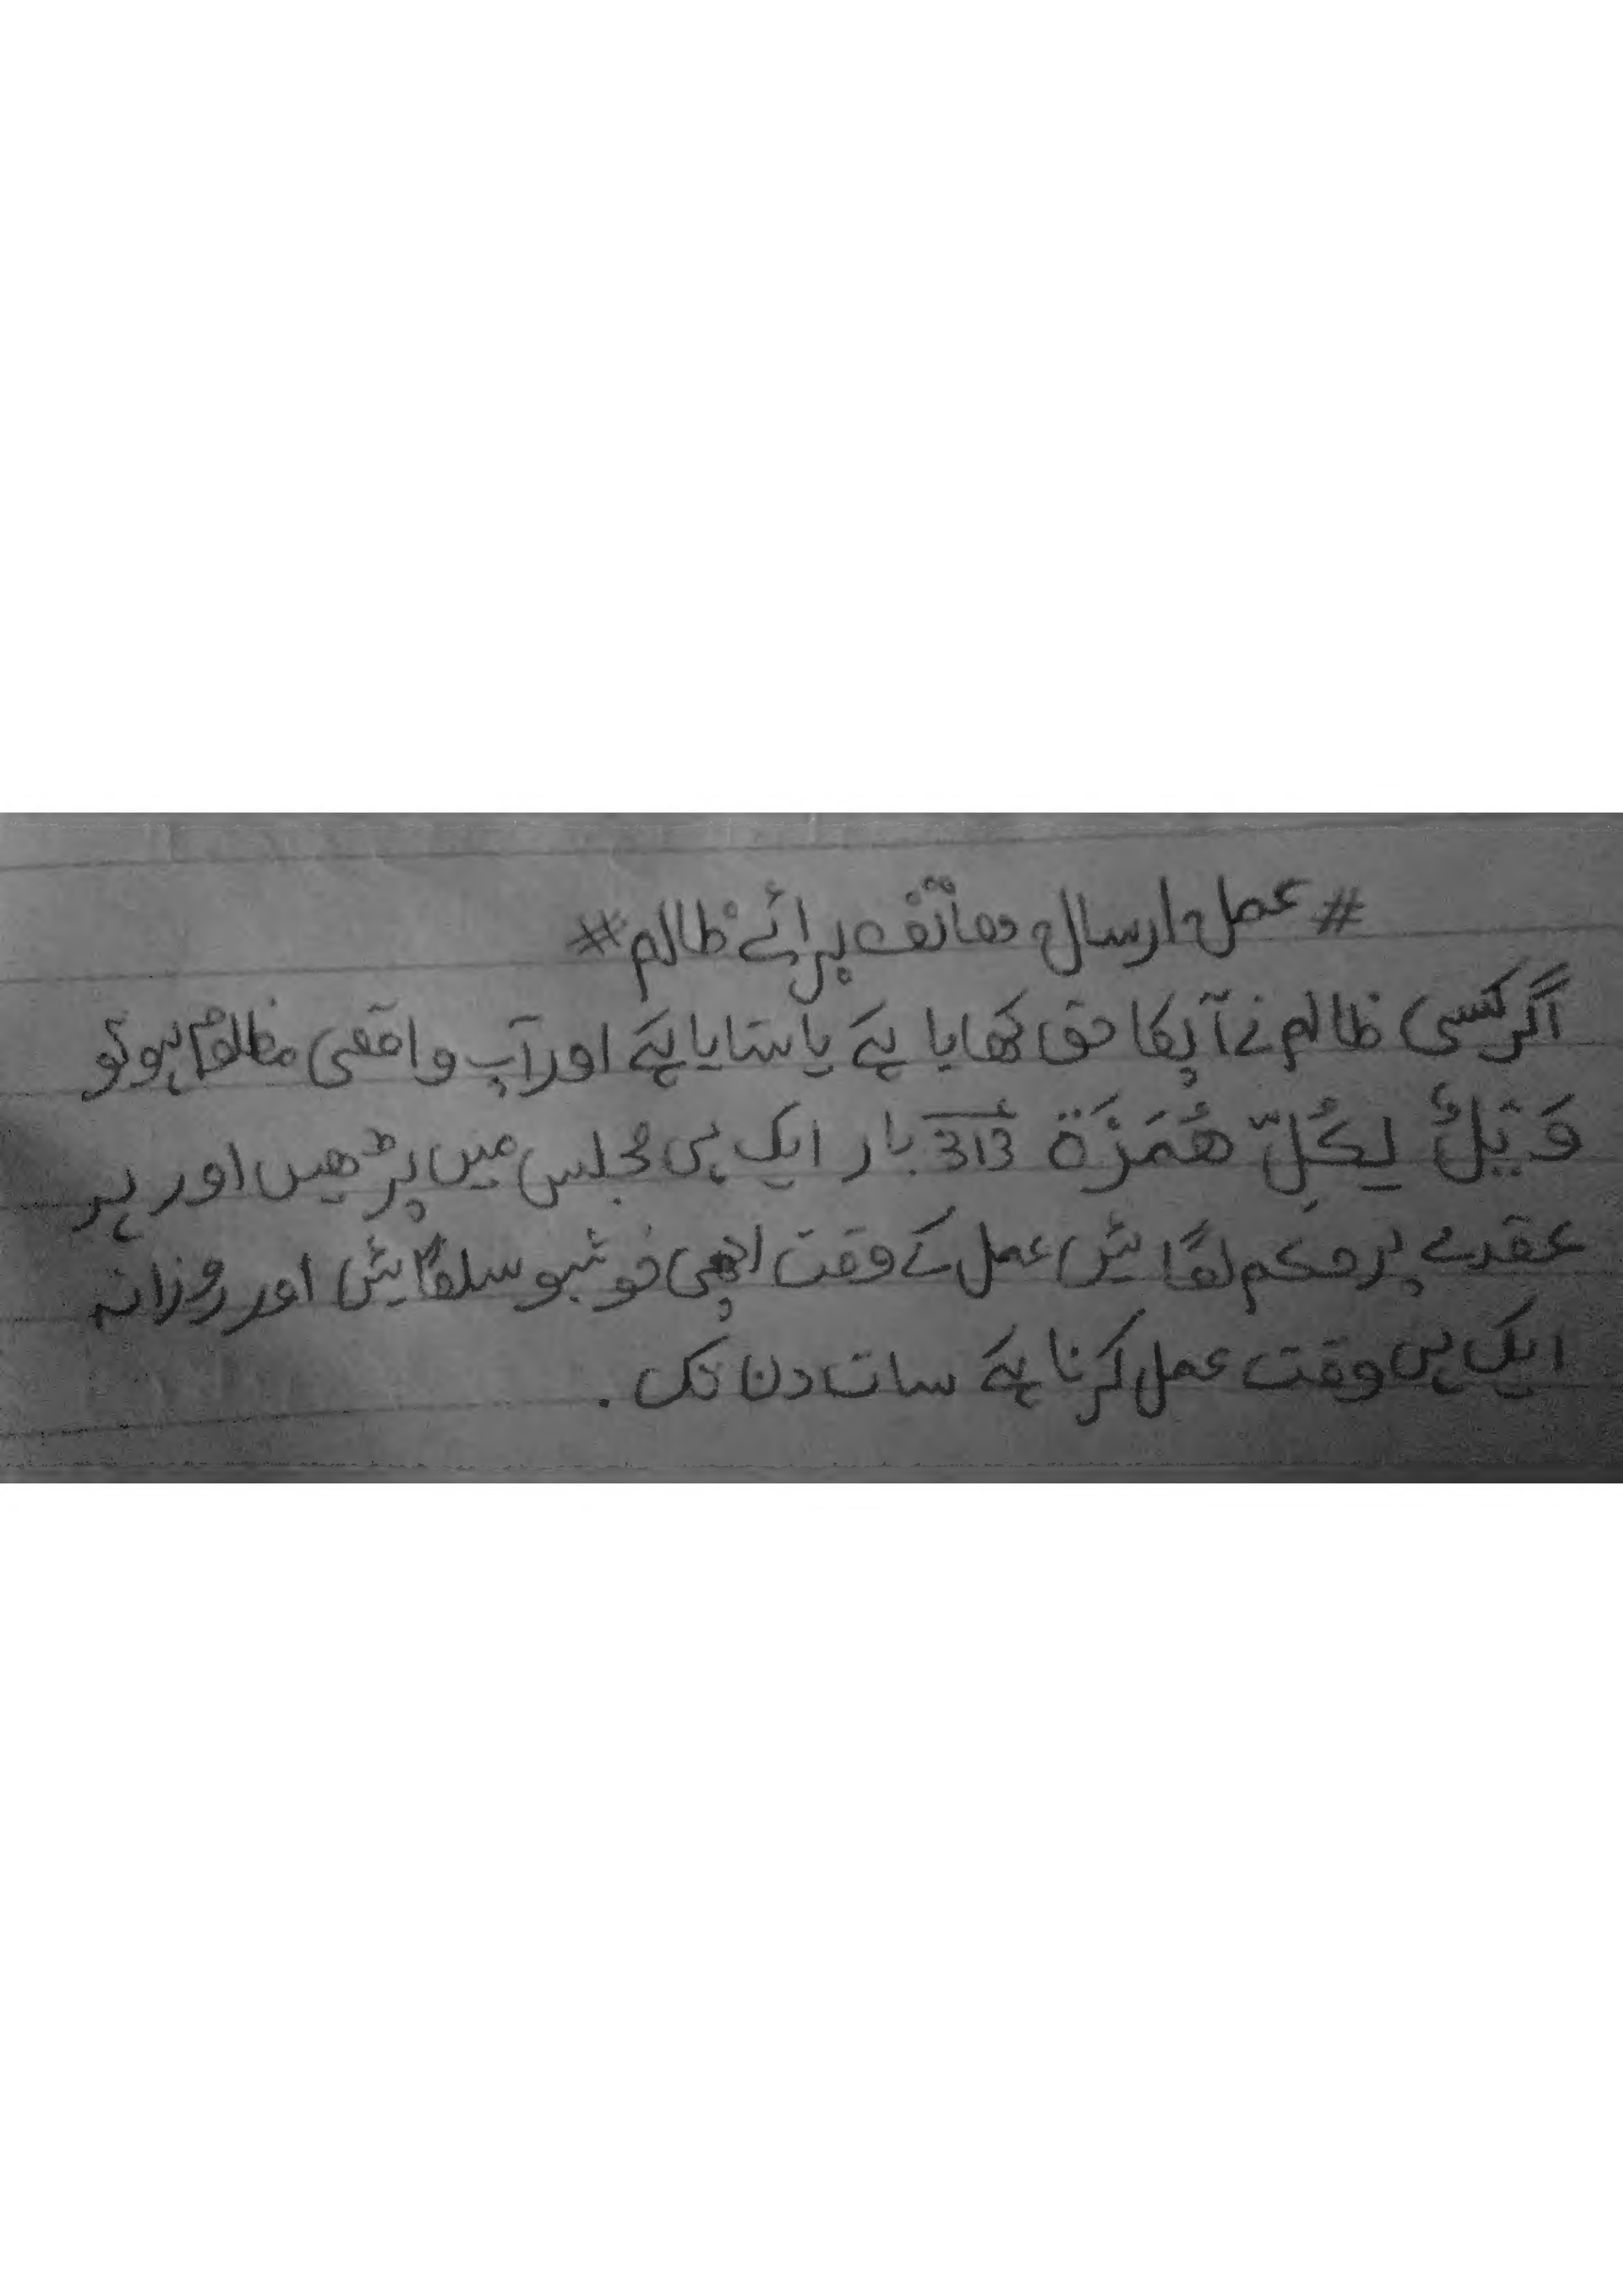 # عمل ارسال ھاتف برائے ظالم #
اگر کسی ظالم نے آپکا حق کھایا ہے یا ستایا ہے اور آپ واقعی مظلوم ہو تو
وَیْلٌ لِکُلِّ ھُمَزَۃ 313 بار ایک ہی مجلس میں پڑھیں اور ہر
عقدے پر حکم لگایئں عمل کے وقت اچھی خوشبو سلگایئں اور روزانہ
ایک ہی وقت عمل کرنا ہے سات دن تک .